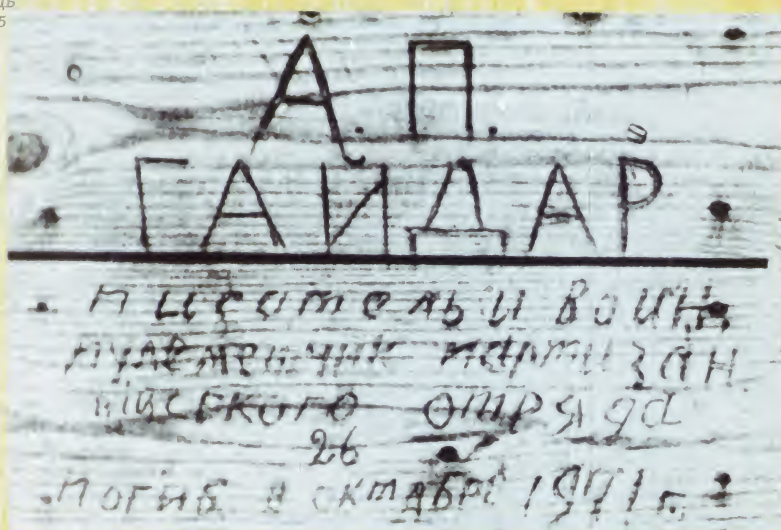 А. П.
ГАЙДАР
писатель и воин
пулеметчик партизан
ского отряда
26
погиб в октябре 1941 г.